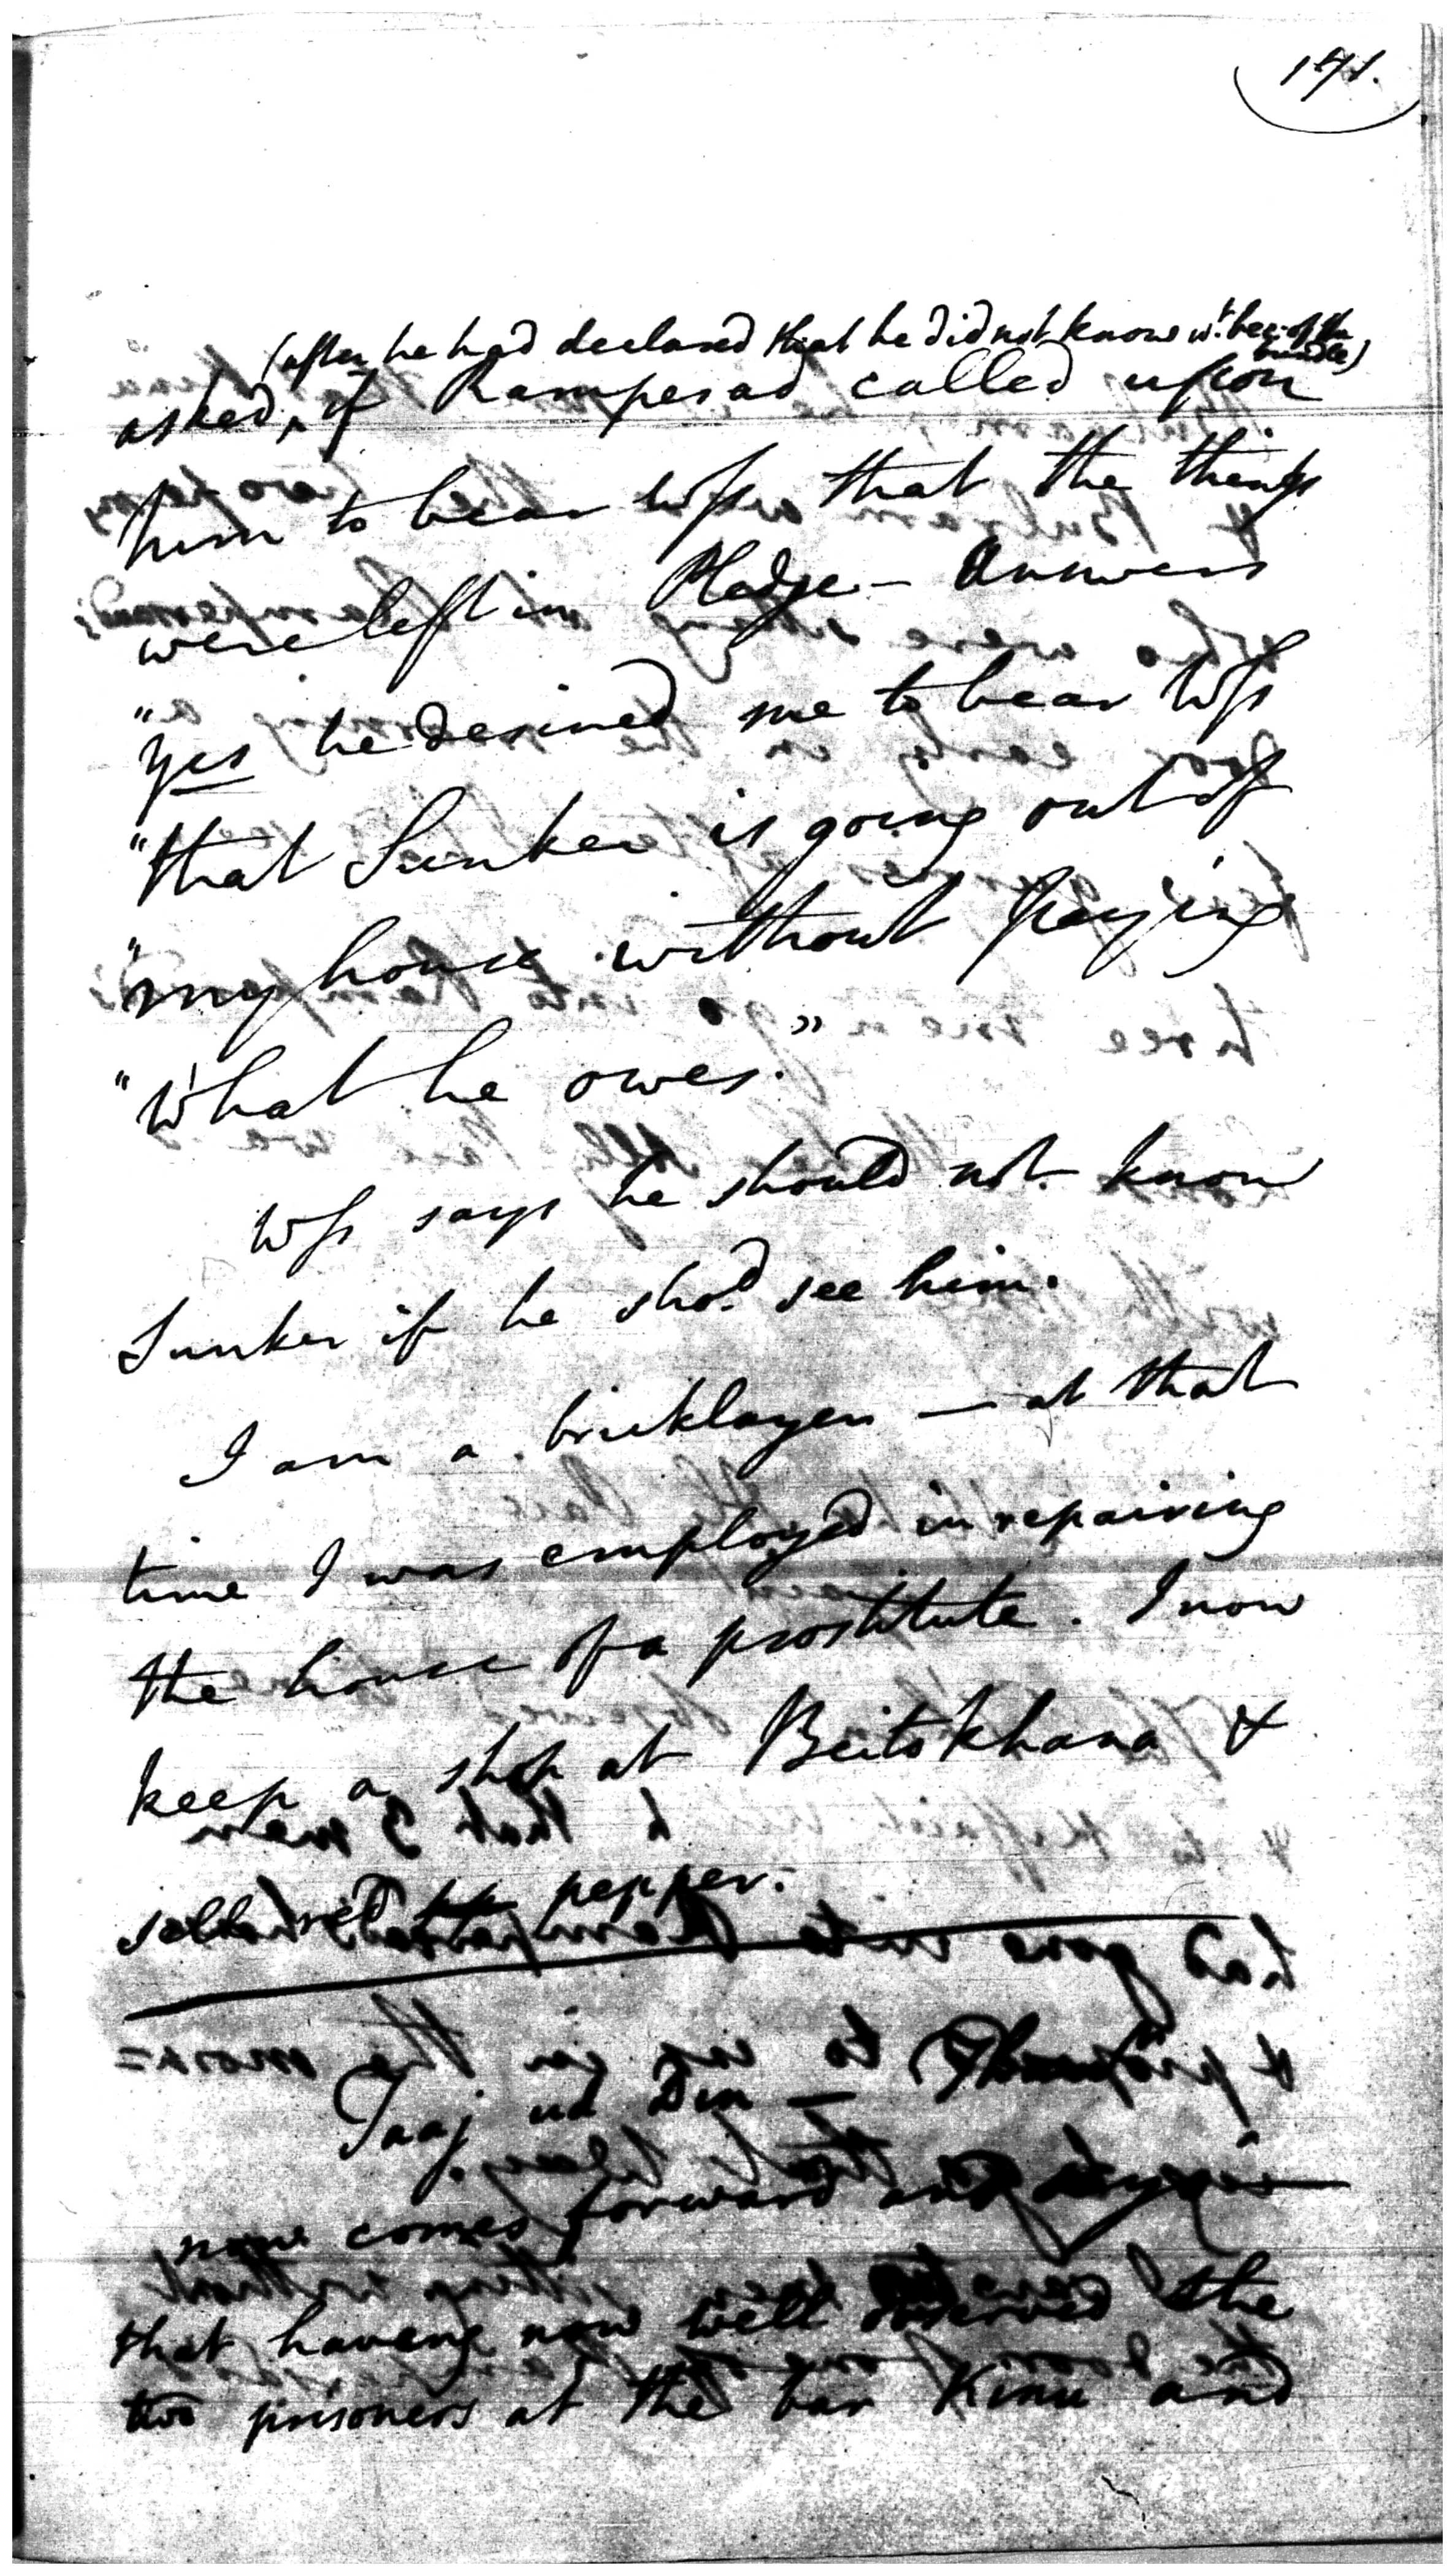 171.
(after he had declared that he did not know wt. bec. of the
bundle)
asked, if Rampersad called upon
him to bear wss that the things
were left in Pledge — Answers
"yes he desired me to bear wss
"that Sunker is going out of
"my house without paying
"what he owes."
wss says he should not know
Sunker if he shod. see him.
I am a bricklayer — at that
time I was employed in repairing
the house of a prostitute. I now
keep a shop at Beitokhana &
sells red pepper.
Taaj ud Din —
now comes forward and says
that having now well observed the
two prisoners at the bar Kinu and